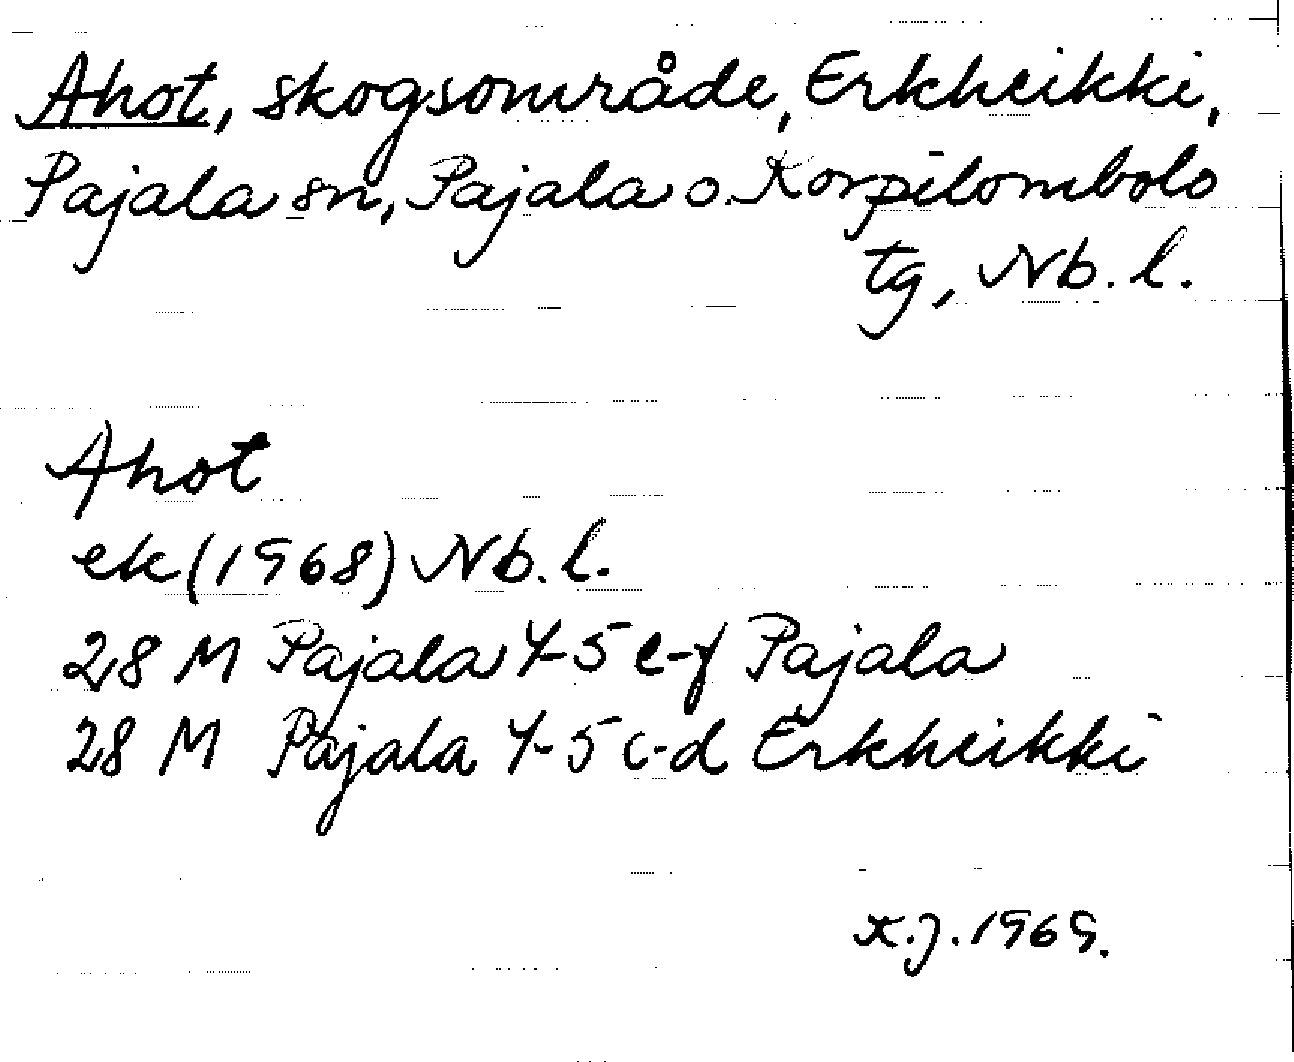 Ahot, skogsområde, Erkheikki,
Pajala sn, Pajala o. Korpilombolo
tg, Nb. l.
Ahot
ek (1968) Nb. l.
28 M Pajala 4-5 e-f Pajala
28 M Pajala 4-5 c-d Erkheikki
K.J. 1969.